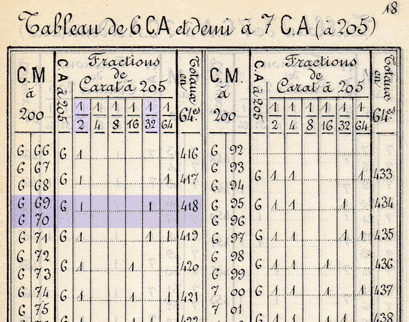 18
Tableau de 6 C.A et demi à 7 C.A (à 205)
C.M à 200 C A à 205 Fractions de Carat à 205 Totaux en 64e C.M. à 200 C A à 205 Fractions de Carat à 205 Totaux en 64e
1/2 1/4 1/8 1/16 1/32 1/64 1/2 1/4 1/8 1/16 1/32 1/64
6 66 6 1 416 6 92
6 67 6 93
6 68 6 1 1 417 6 94 6 1 1 433
6 69 6 1 1 418 6 95 6 1 1 1 434
6 70 6 96
6 71 6 1 1 1 419 6 97 6 1 1 1 1 435
6 72 6 98
6 73 6 1 1 420 6 99 6 1 1 1 436
6 74 6 1 1 1 421 7 00 6 1 1 1 1 437
6 75 7 01
438